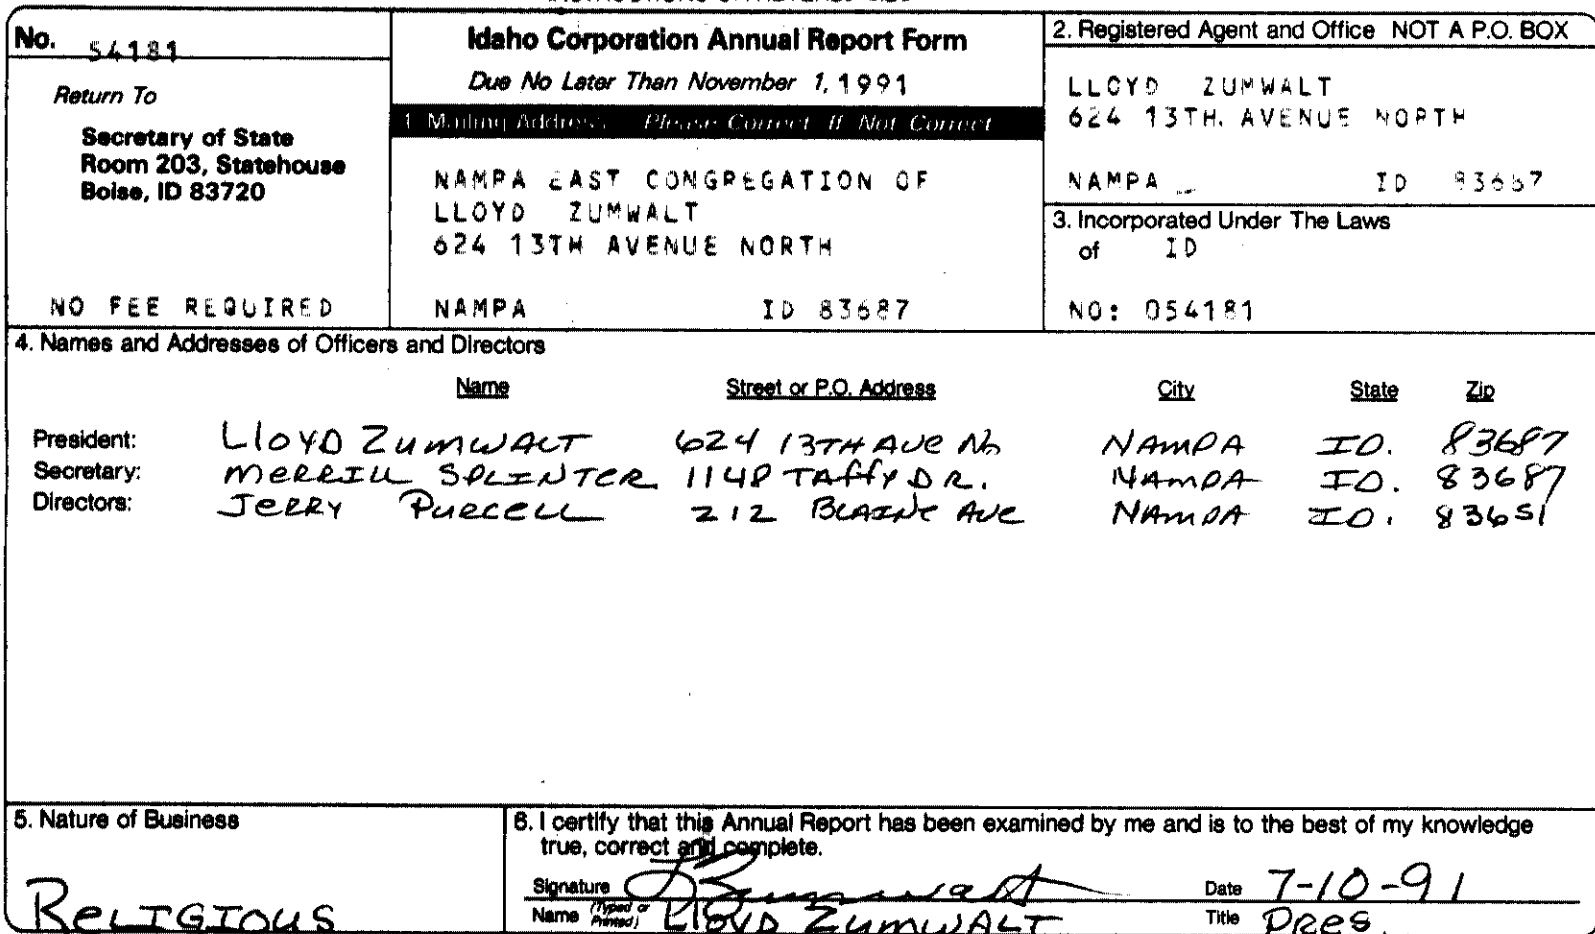 No. 54181
Return To
Secretary of State
Room 203, Statehouse
Boise, ID 83720
NO FEE REQUIRED
Idaho Corporation Annual Report Form
Due No Later Than November 1, 1991
1. Mailing Address. Please Correct If Not Correct
NAMPA EAST CONGREGATION OF
LLOYD ZUMWALT
624 13TH AVENUE NORTH
NAMPA ID 83687
2. Registered Agent and Office NOT A P.O. BOX
LLOYD ZUMWALT
624 13TH. AVENUE NORTH
NAMPA ID 83687
3. Incorporated Under The Laws
of ID
NO: 054181
4. Names and Addresses of Officers and Directors
Name Street or P.O. Address City State Zip
President: Lloyd Zumwalt 624 13TH Ave No NAMPA ID. 83687
Secretary: Merrill Splinter 1148 Taffy Dr. NAMPA ID. 83687
Directors: Jerry Purcell 212 Blaine Ave NAMPA ID. 83651
5. Nature of Business
Religious
6. I certify that this Annual Report has been examined by me and is to the best of my knowledge
true, correct and complete.
Signature Date 7-10-91
Name (Typed or Printed) Lloyd Zumwalt Title Pres.